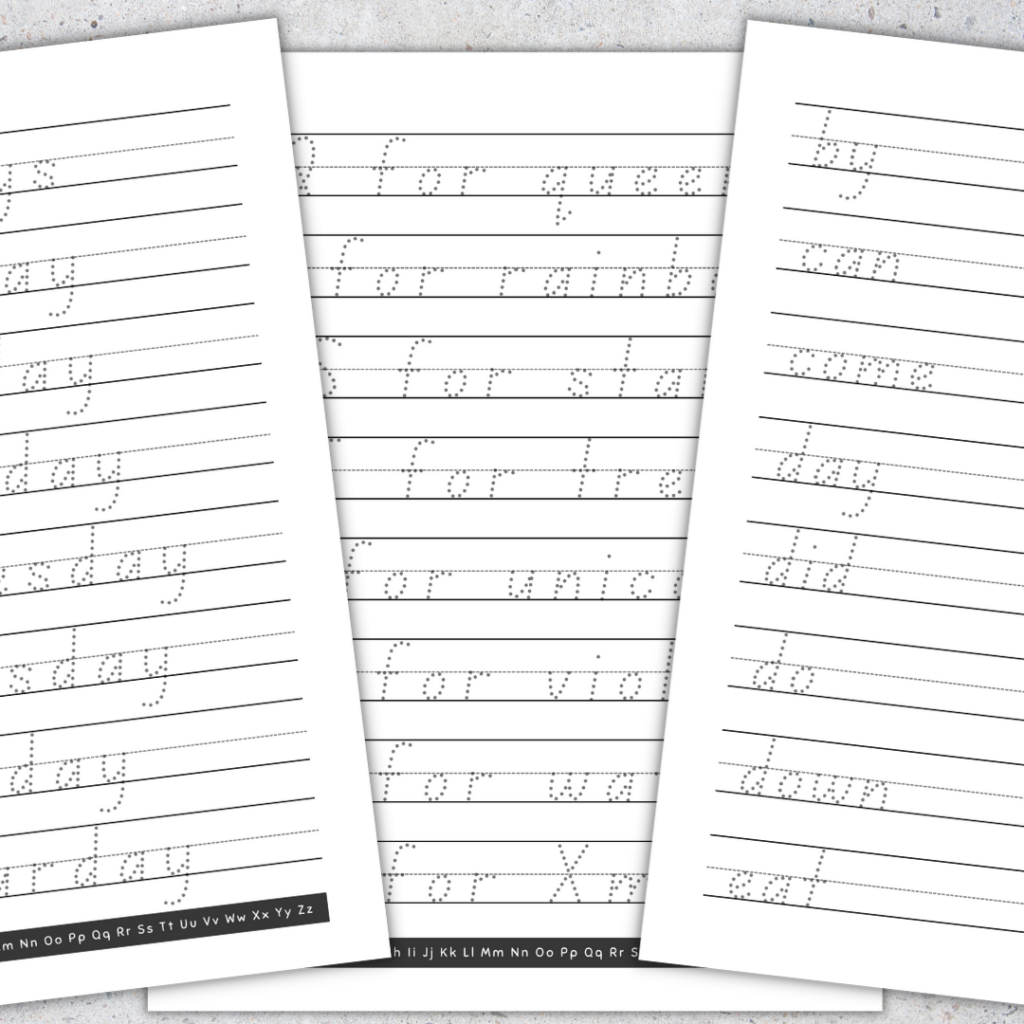 ys
ay
ay
day
sday
sday
day
rday
m Nn Oo Pp Qq Rr Ss Tt Uu Vv Ww Xx Yy Zz
for quee
for rainb
for sta
for tre
for unic
for viol
for wa
for Xm
h Ii Jj Kk Ll Mm Nn Oo Pp Qq Rr S
by
can
come
day
did
do
down
eat